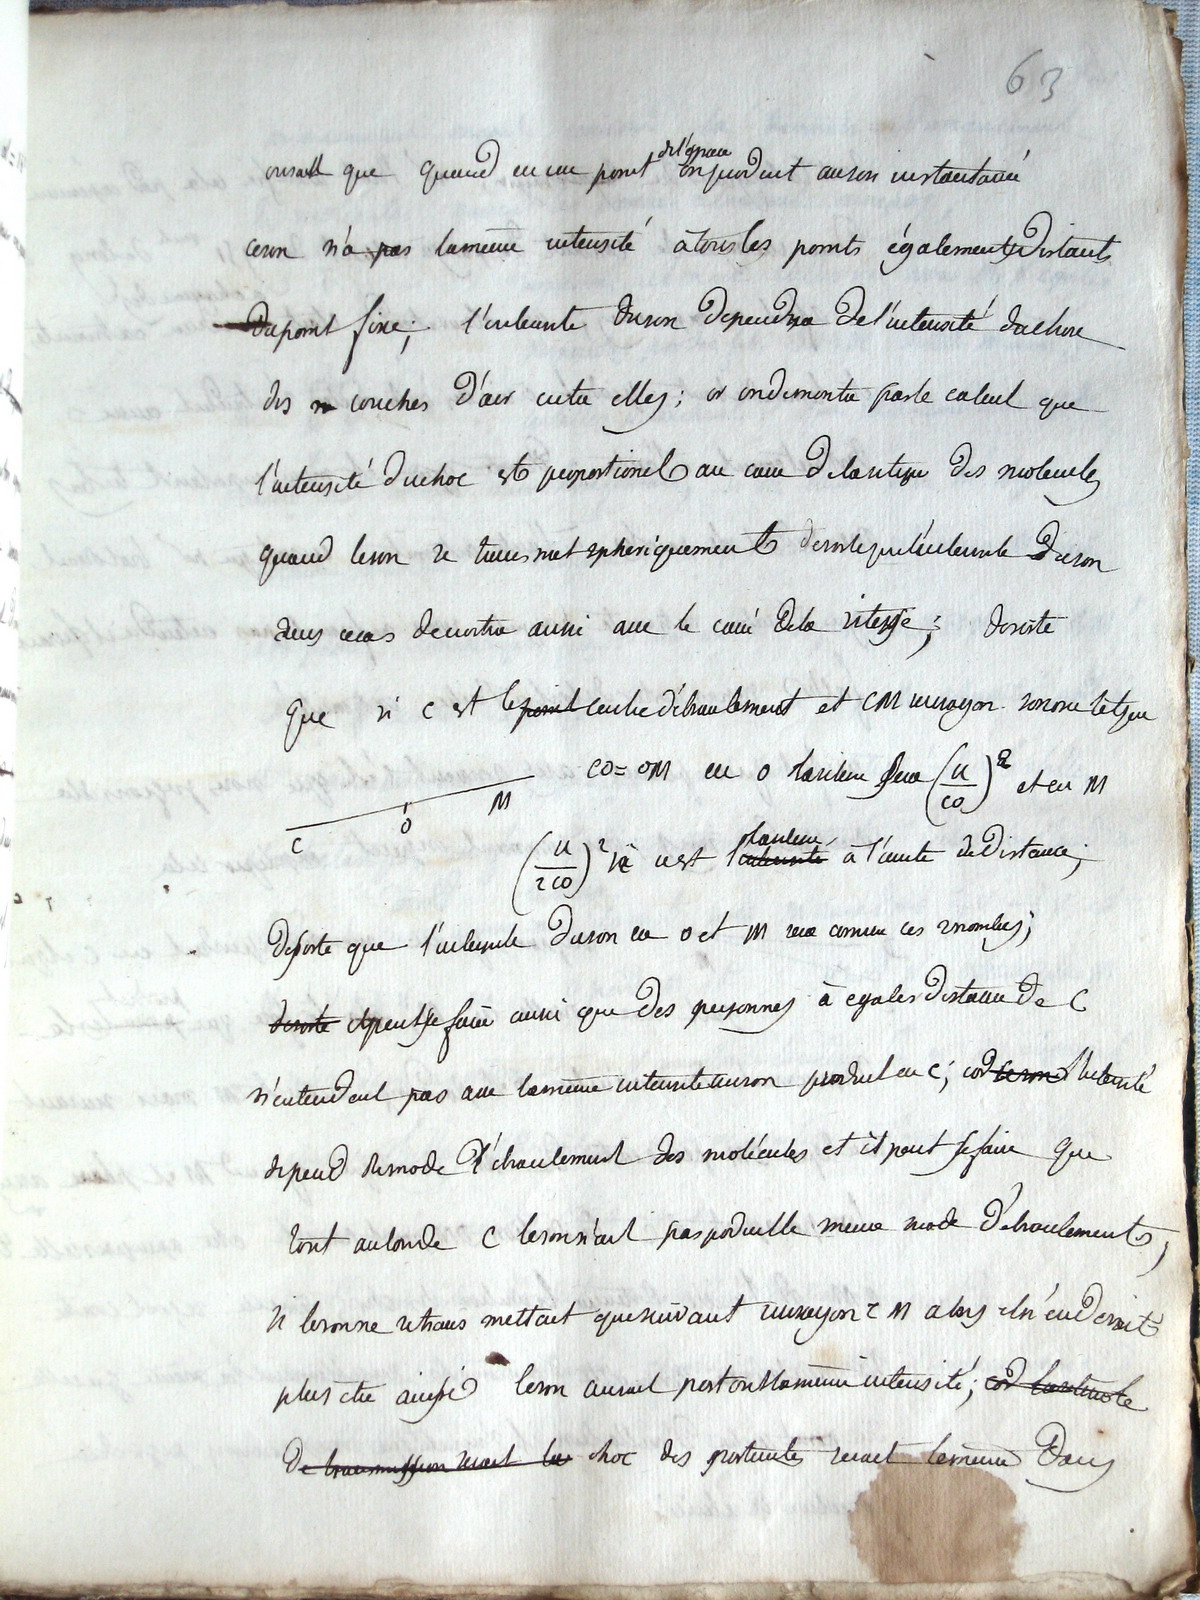 63
on sait que quand en un point de l'espace on produit un son instantané
ce son n'a pas la même intensité à tous les points également distants
du point fixe; l'intensité du son dependra de l'intensité du choc
des couches d'air entre elles; or on demontre par le calcul que
l'intensité du choc est proportionel au carré de la vitesse des molecules
quand le son se transmet spheriquement de sorte que l'intensité du son
dans ce cas decroitra aussi avec le carré de la vitesse; de sorte
que si C est le point centre d'ébranlement et CM un rayon sonore tel que
CO = OM en O la vitesse sera (u/CO)² et en M
C O M
(u/2CO)² si u est l'intensité la vitesse à l'unité de distance;
de sorte que l'intensité du son en O et M sera comme ces 2 nombres;
de sorte il peut se faire aussi que des personnes à egales distance de C
n'entendent pas avec la même intensité un son produit en C; car le son l'intensité
depend du mode d'ébranlement des molécules et il peut se faire que
tout autour de C le son n'ait pas produit le meme mode d'ébranlement;
si le son ne se transmettait que suivant un rayon CM alors il n'en devrait
plus etre ainsi le son aurait partout la même intensité; car la vitesse
de transmission serait le choc des particules serait le même dans